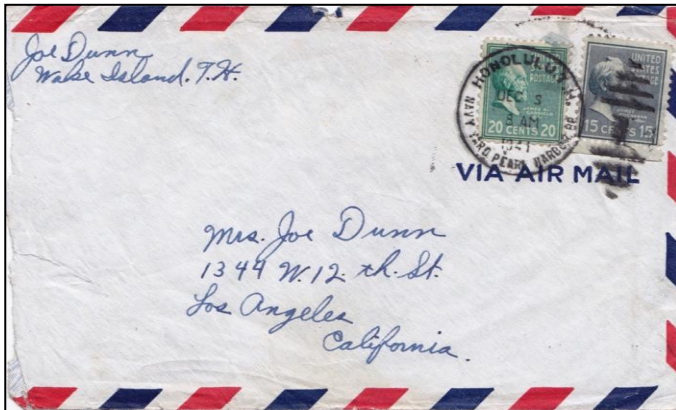 Joe Dunn
Wake Island. T.H.
HONOLULU, T.H.
DEC 5
3 AM
1941
NAVY YARD PEARL HARBOR BR.
POSTAGE
20 CENTS 20
UNITED
STATES
POSTAGE
15 CENTS 15
VIA AIR MAIL
Mrs. Joe Dunn
1344 W. 12. th. St.
Los Angeles
California.